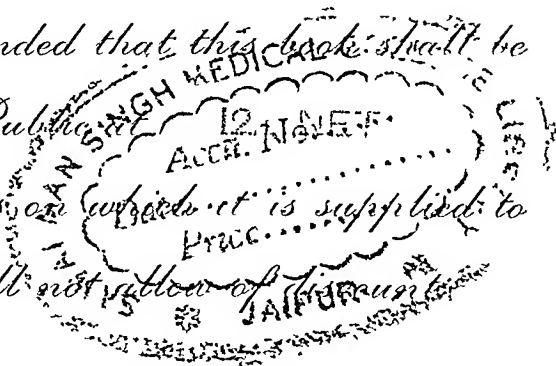 nded that this book shall be
Public at 12/- NET.
on which it is supplied to
ll not allow of discount
SAWAI MAN SINGH MEDICAL COLLEGE LIBRARY
Accn. No.
Date
Price
JAIPUR